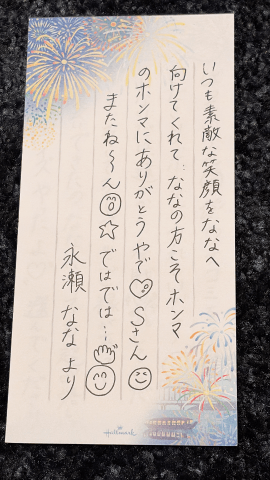 いつも素敵な笑顔をななへ
向けてくれて…ななの方こそホンマ
のホンマにありがとうやで♡Sさん☺
またね〜ん☺☆ではでは…👋☺
永瀬ななより
Hallmark